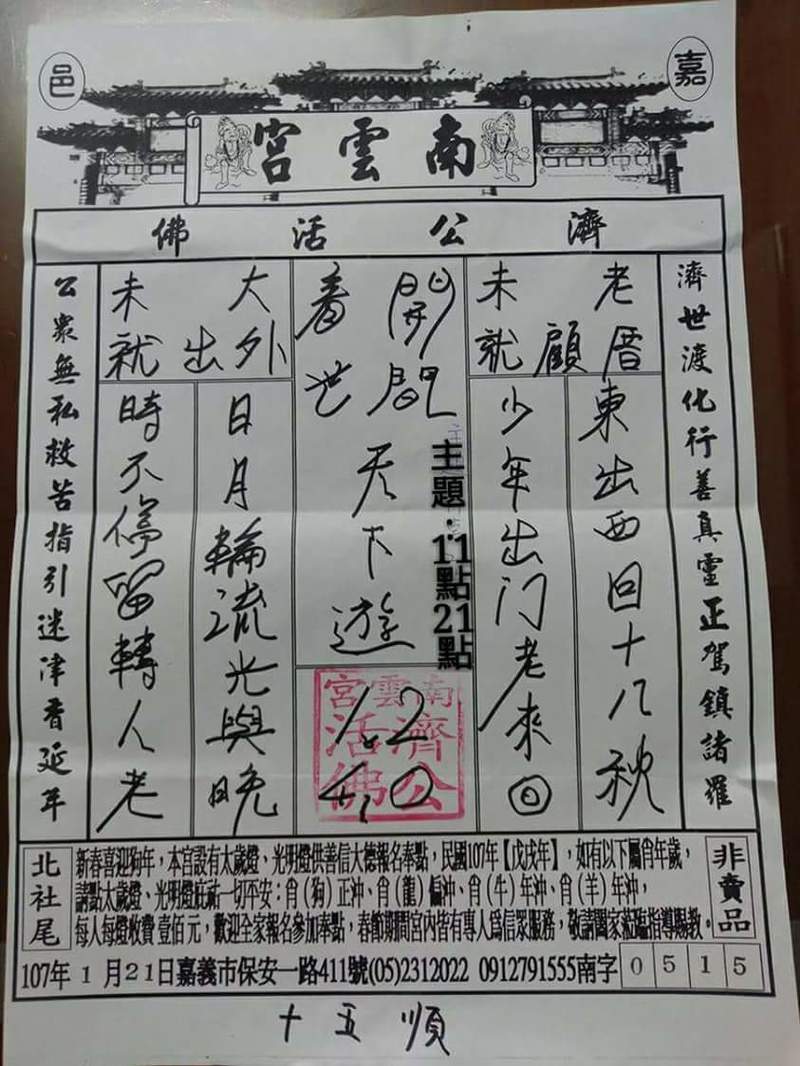 嘉邑
南雲宮
濟公活佛
濟世渡化行善真靈正駕鎮諸羅
老厝
未顧
就
東出西回十八秋
少年出门老來回
開閱
看世間
天下遊
主題:11點21點
南雲宮
濟公
活佛
1.2
4.0
大外
未出
就
日月輪流光與晚
時不停留轉人老
公眾無私救苦指引迷津香延年
北社尾
新春喜迎狗年，本宮設有太歲燈、光明燈供善信大德報名奉點，民國107年【戊戌年】，如有以下屬肖年歲，
請點太歲燈、光明燈庇祐一切平安：肖(狗)正沖、肖(龍)偏沖、肖(牛)年沖、肖(羊)年沖，
每人每燈收費壹佰元，歡迎全家報名參加奉點，春節期間宮內皆有專人為信眾服務，敬請闔家蒞臨指導賜教。
非賣品
107年1月21日嘉義市保安一路411號(05)2312022 0912791555南字0515
十五順